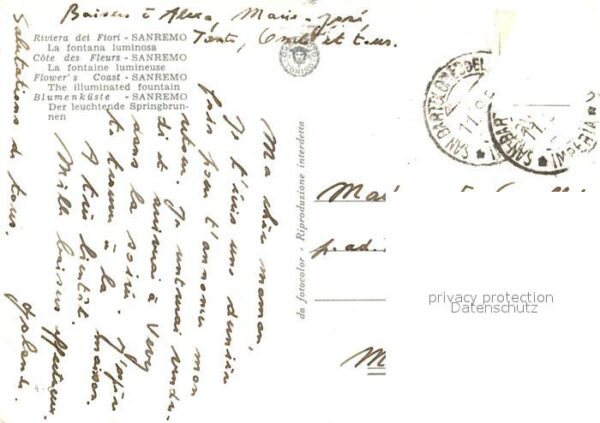 Baisers à Alex, Marie-José,
Tante, et tous.
Riviera dei Fiori - SANREMO
La fontana luminosa
Côte des Fleurs - SANREMO
La fontaine lumineuse
Flower's Coast - SANREMO
The illuminated fountain
Blumenküste - SANREMO
Der leuchtende Springbrun-
nen
Ma chère maman,
Je t'écris une dernière
fois pour t'annoncer mon
retour. Je
di et à Vevey
dans la soirée. J'espère
te trouver à la maison.
A très bientôt.
Mille baisers affectueux
Yolande.
Salutations à tous.
da fotocolor - Riproduzione interdetta
SAN BARTOLOMEO DEL
11.
SAN BAR
IMPERIA
Ma
p.ad.
M
privacy protection
Datenschutz